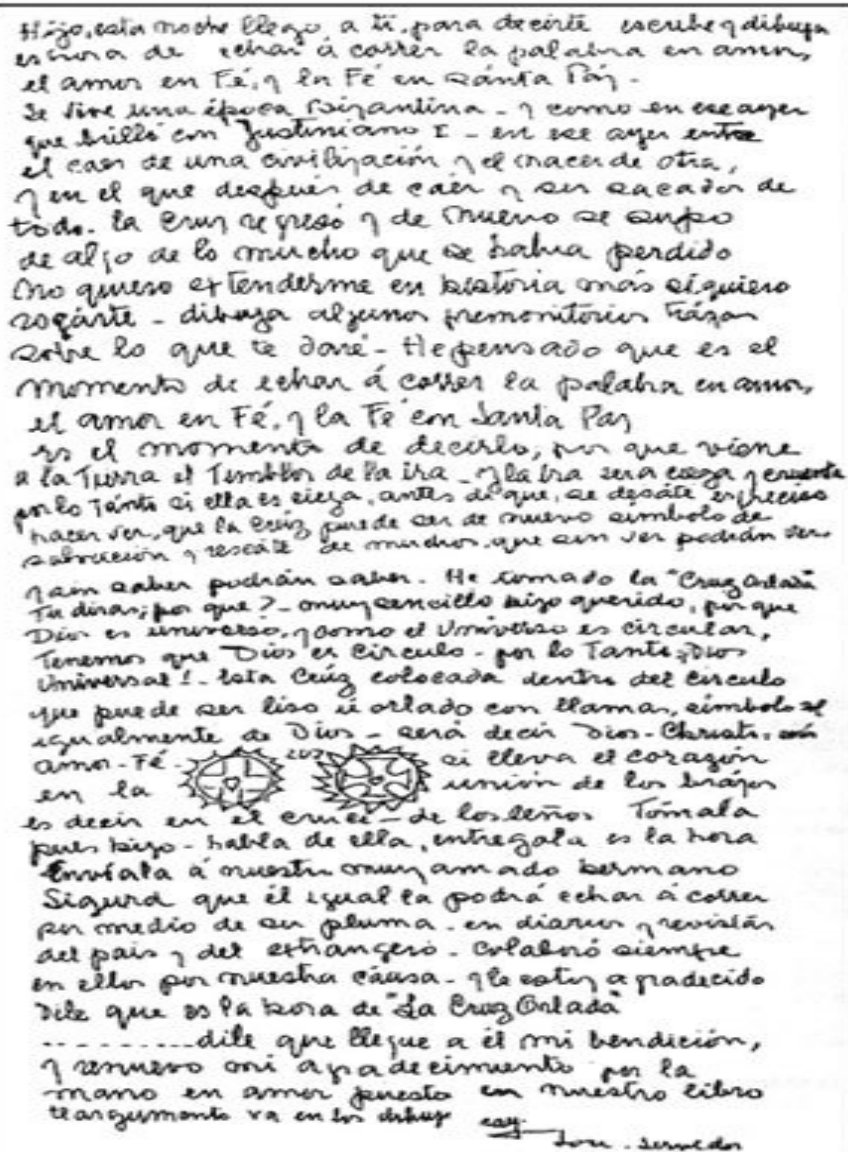 Hijo, esta noche llego, a ti, para decirte escribe y dibuja
es hora de echar á correr la palabra en amor,
el amor en Fé, y la Fé en Santa Páz -
Se vive una época Bizantina - y como en ese ayer
que brilló con Justiniano I - en ese ayer entre
el caer de una civilización y el nacer de otra,
y en el que después de caer y ser sacador de
todo. la Cruz regresó y de nuevo se supo
de algo de lo mucho que se habia perdido
no quiero extenderme en historia más siquiero
rogárte - dibuja algunos premonitorios trázos
sobre lo que te daré - He pensado que es el
momento de echar á correr la palabra en amor,
el amor en Fé, y la Fé en Santa Paz
es el momento de decirlo, por que viene
a la Tierra el Temblor de la ira - y la ira sera ciega y cruenta
por lo tánto si ella es ciega, antes de que, se desáte es preciso
hacer ver, que la Crúz puede ser de nuevo simbolo de
salvación y rescáte de muchos, que sin ver podrán ver
y sin saber podrán saber. He tomado la "Cruz Orlada"
Tu diras; por que? - muy sencillo hijo querido, por que
Dios es universo, y como el Universo es circular,
Tenemos que Dios es Circulo - por lo Tanto ¡Dios
Universal! - Esta Crúz colocada dentro del circulo
que puede ser liso ú orlado con llamas, simbolo
igualmente de Dios - será decir Dios - Christo,
amor - Fé - si lleva el corazón
en la unión de los brazos
es decir en el cruce - de los leños Tómala
pues hijo - habla de ella, entregala es la hora
Envíala á nuestro muy amado hermano
Sigurd que él igual la podrá echar á correr
por medio de su pluma - en diarios y revistás
del pais y del extrangero - Colaboró siempre
en ellos por nuestra cáusa - y le estoy agradecido
Dile que es la hora de "La Cruz Orlada"
.......... dile que llegue a él mi bendición,
y renuevo mi agradecimiento por la
mano en amor puesta en nuestro libro
te argumento va en los dibuj